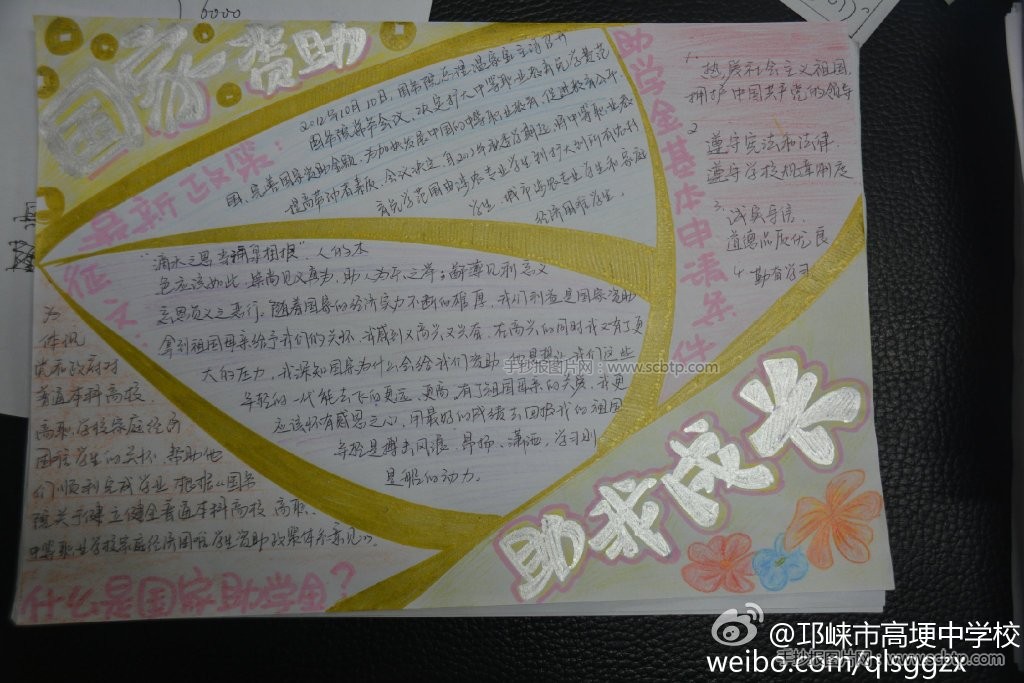 6000
国家资助
最新政策：
2012年10月10日，国务院总理温家宝主持召开
国务院常务会议，决定扩大中等职业教育免学费范
围，完善国家资助金制，为加快发展中国的中等职业教育，促进教育公平，
提高劳动者素质，会议决定，自2012年秋季学期起，将中等职业教
育免学范围由涉农专业学生到扩大到所有农村
学生，城市涉农专业学生和家庭
经济困难学生。
助学金基本申请条件
1.
热爱社会主义祖国，
拥护中国共产党的领导
2
遵守宪法和法律，
遵守学校规章制度
3.
诚实守信，
道德品质优良
4. 勤奋学习
征文：
“滴水之恩当涌泉相报”，人的本
色应该如此，崇尚见义真为，助人为乐之举；鄙薄见利忘义
忘恩负义之恶行。随着国家的经济实力不断的雄厚，我们利益是国家资助
拿到祖国母亲给予我们的关怀，我感到又高兴又兴奋。在高兴的同时我又有了更
大的压力，我深知国家为什么会给我们资助，但是想让我们这些
年轻的一代能去飞的更远，更高，有了祖国母亲的关爱，我更
应该怀有感恩之心，用最好的成绩去回报我的祖国
年轻是搏击风浪，昂扬、潇洒，学习则
是船的动力。
为
体现
党和政府对
普通本科高校、
高职、学校家庭经济
困难学生的关怀，帮助他
们顺利完成学业，根据《国务
院关于建立健全普通本科高校 高职、
中等职业学校家庭经济困难学生资助政策体系意见》。
什么是国家助学金？
助我成长
手抄报图片网：www.scbtp.com
@邛崃市高埂中学校
手抄报图片网：www.scbtp.com
weibo.com/qlsggzx